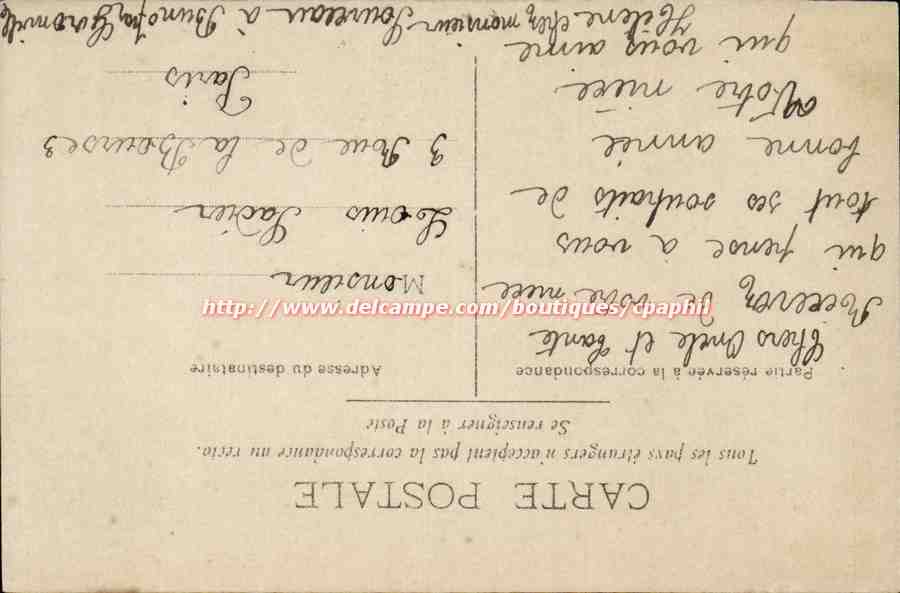 CARTE POSTALE
Tous les pays étrangers n'acceptent pas la correspondance au recto.
Se renseigner à la Poste
Partie réservée à la correspondance
Adresse du destinataire
Chers Oncle et tante
Recevez de votre niece
qui pense a vous
tout ses souhaits de
bonne année
Votre niece
qui vous aime
Hélène chez monsieur
Monsieur
Louis
3 Rue de la Bourse 3
Paris
http://www.delcampe.com/boutiques/cpaphil